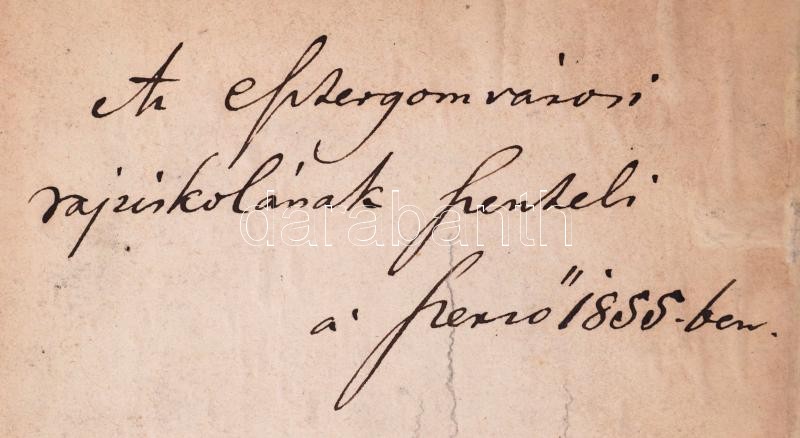 Az esztergomvárosi
rajziskolának szenteli
a' szerző 1855-ben.
darabanth